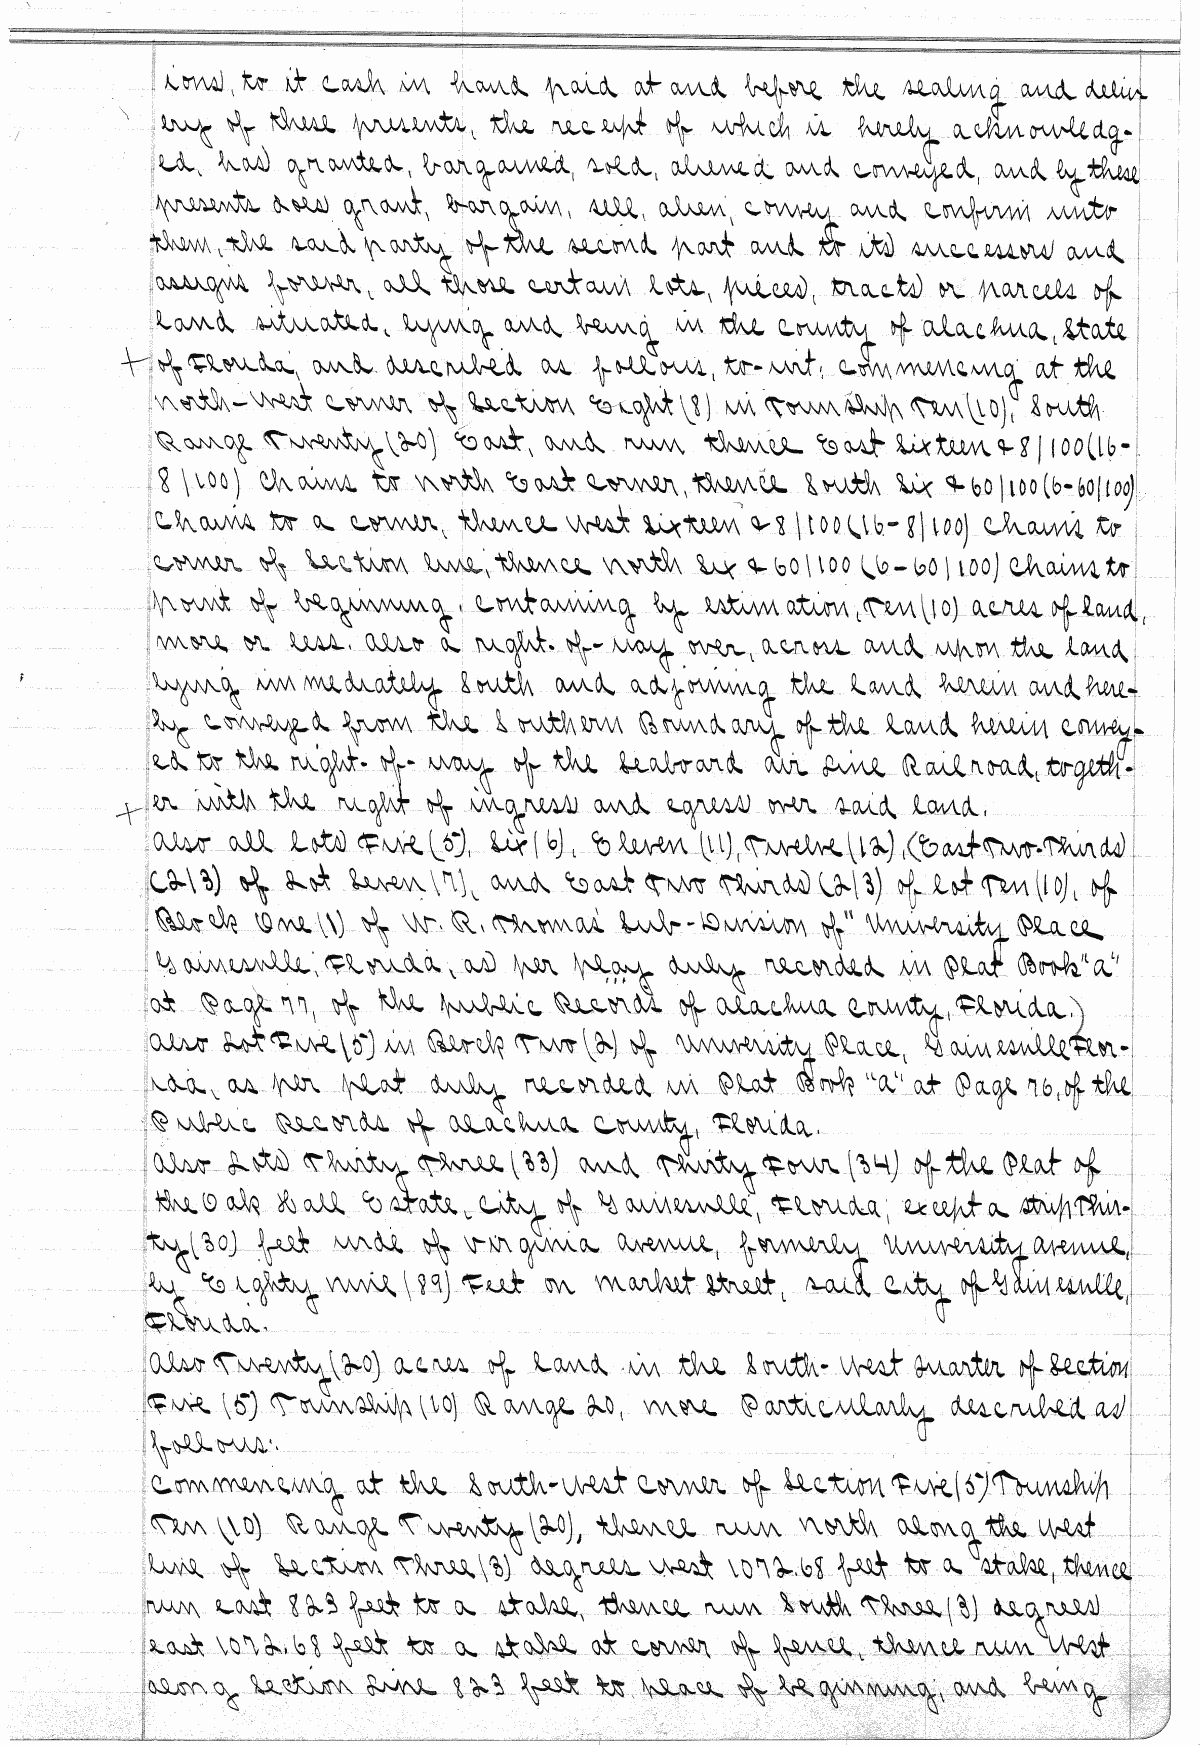 ions, to it cash in hand paid at and before the sealing and deliv
ery of these presents, the receipt of which is hereby acknowledg-
ed, has granted, bargained, sold, aliened and conveyed, and by these
presents does grant, bargain, sell, alien, convey and confirm unto
them, the said party of the second part and to its successors and
assigns forever, all those certain lots, pieces, tracts or parcels of
land situated, lying and being in the county of Alachua, State
+ of Florida, and described as follows, to-wit: Commencing at the
North-West corner of Section Eight (8) in Township Ten (10), South
Range Twenty (20) East, and run thence East Sixteen & 8/100 (16-
8/100) Chains to North East corner, thence South Six & 60/100 (6-60/100)
Chains to a corner, thence West Sixteen & 8/100 (16-8/100) Chains to
corner of Section line, thence North Six & 60/100 (6-60/100) Chains to
point of beginning. Containing by estimation, Ten (10) acres of land,
more or less. Also a right-of-way over, across and upon the land
lying immediately South and adjoining the land herein and here-
by conveyed from the Southern Boundary of the land herein convey-
ed to the right-of-way of the Seaboard Air Line Railroad, togeth-
+ er with the right of ingress and egress over said land.
Also all Lots Five (5), Six (6), Eleven (11), Twelve (12), (East Two-Thirds
(2/3) of Lot Seven (7), and East Two Thirds (2/3) of Lot Ten (10), of
Block One (1) of W. R. Thomas' Sub-Division of "University Place
Gainesville, Florida, as per play duly recorded in Plat Book "A"
at Page 77, of the public Records of Alachua County, Florida.)
Also Lot Five (5) in Block Two (2) of University Place, Gainesville Flor-
ida, as per plat duly recorded in Plat Book "A" at Page 76, of the
Public Records of Alachua County, Florida.
Also Lots Thirty Three (33) and Thirty Four (34) of the Plat of
the Oak Hall Estate, City of Gainesville, Florida, except a strip Thir-
ty (30) feet wide of Virginia Avenue, formerly University Avenue,
by Eighty nine (89) Feet on Market Street, said City of Gainesville,
Florida.
Also Twenty (20) acres of land in the South-West Quarter of Section
Five (5) Township (10) Range 20, more Particularly described as
follows:
Commencing at the South-West Corner of Section Five (5) Township
Ten (10) Range Twenty (20), thence run North along the West
line of Section Three (3) degrees West 1072.68 feet to a stake, thence
run east 823 feet to a stake, thence run South Three (3) degrees
east 1072.68 feet to a stake at corner of fence, thence run West
along Section Line 823 feet to place of beginning, and being